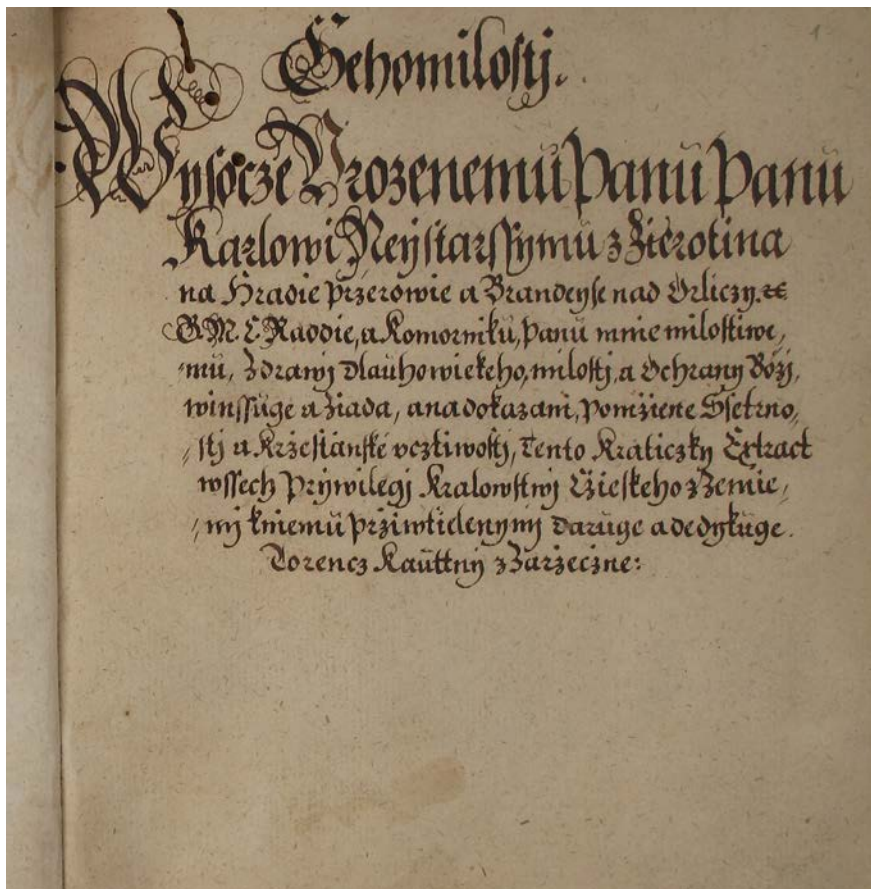 Gehomilostj.
Wysocze Vrozenemů Panů Panů
Karlowi Neystarssymů z Zierotina
na Hradie Przerowie a Brandeyse nad Orliczy. ꝛc
G. M. C. Raddie, a Komorniků, Panů mnie milostiwe,
,mů, Zdrawj Dlauhowiekeho, milostj, a Ochrany Božj,
winssuge a žiada, a na dokazani, Ponižene Ssetrno,
,stj a Krzestianske vcztiwostj, Tento Kraticzky Extract
wssech Prywilegj Kralowstwj Czieskeho z Zemie,
,mj kniemů Prziwtielenymj daruge a dedykuge.
Lorencz Kauttny z Zarzeczne: